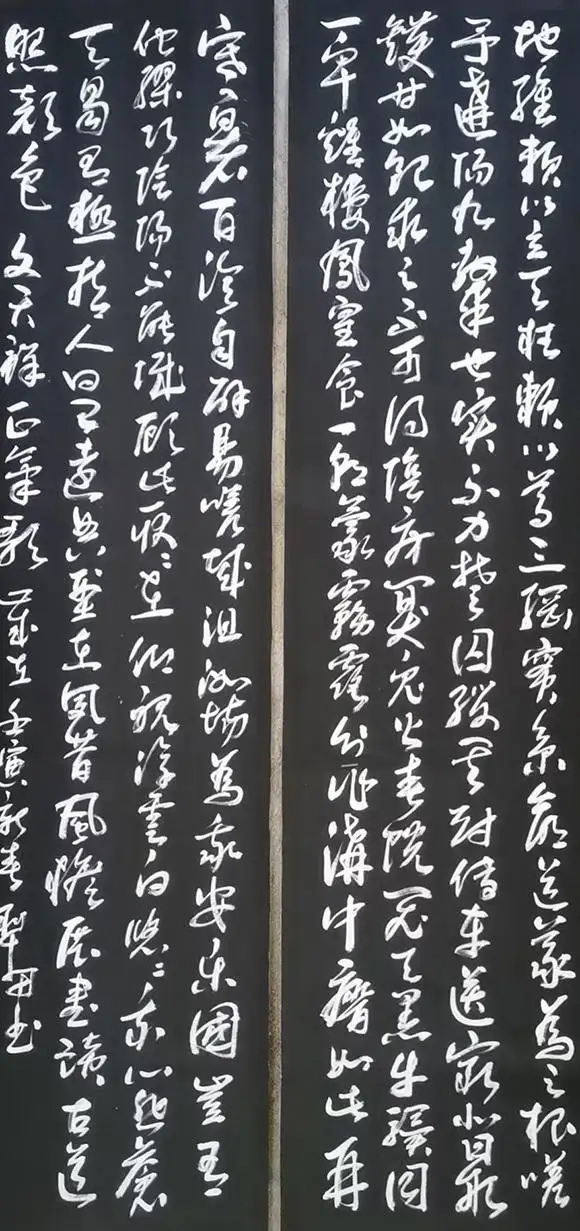 地維賴以立天柱賴以尊三綱實系命道義為之根嗟
予遘陽九隸也實不力楚囚纓其冠傳車送窮北鼎
鑊甘如飴求之不可得陰房闃鬼火春院閟天黑牛驥同
一皁雞棲鳳凰食一朝蒙霧露分作溝中瘠如此再
寒暑百沴自辟易嗟哉沮洳場為我安樂國豈有
他繆巧陰陽不能賊顧此耿耿在仰視浮雲白悠悠我心悲蒼
天曷有極哲人日已遠典型在夙昔風檐展書讀古道
照顏色 文天祥正氣歌 歲在壬寅新春書